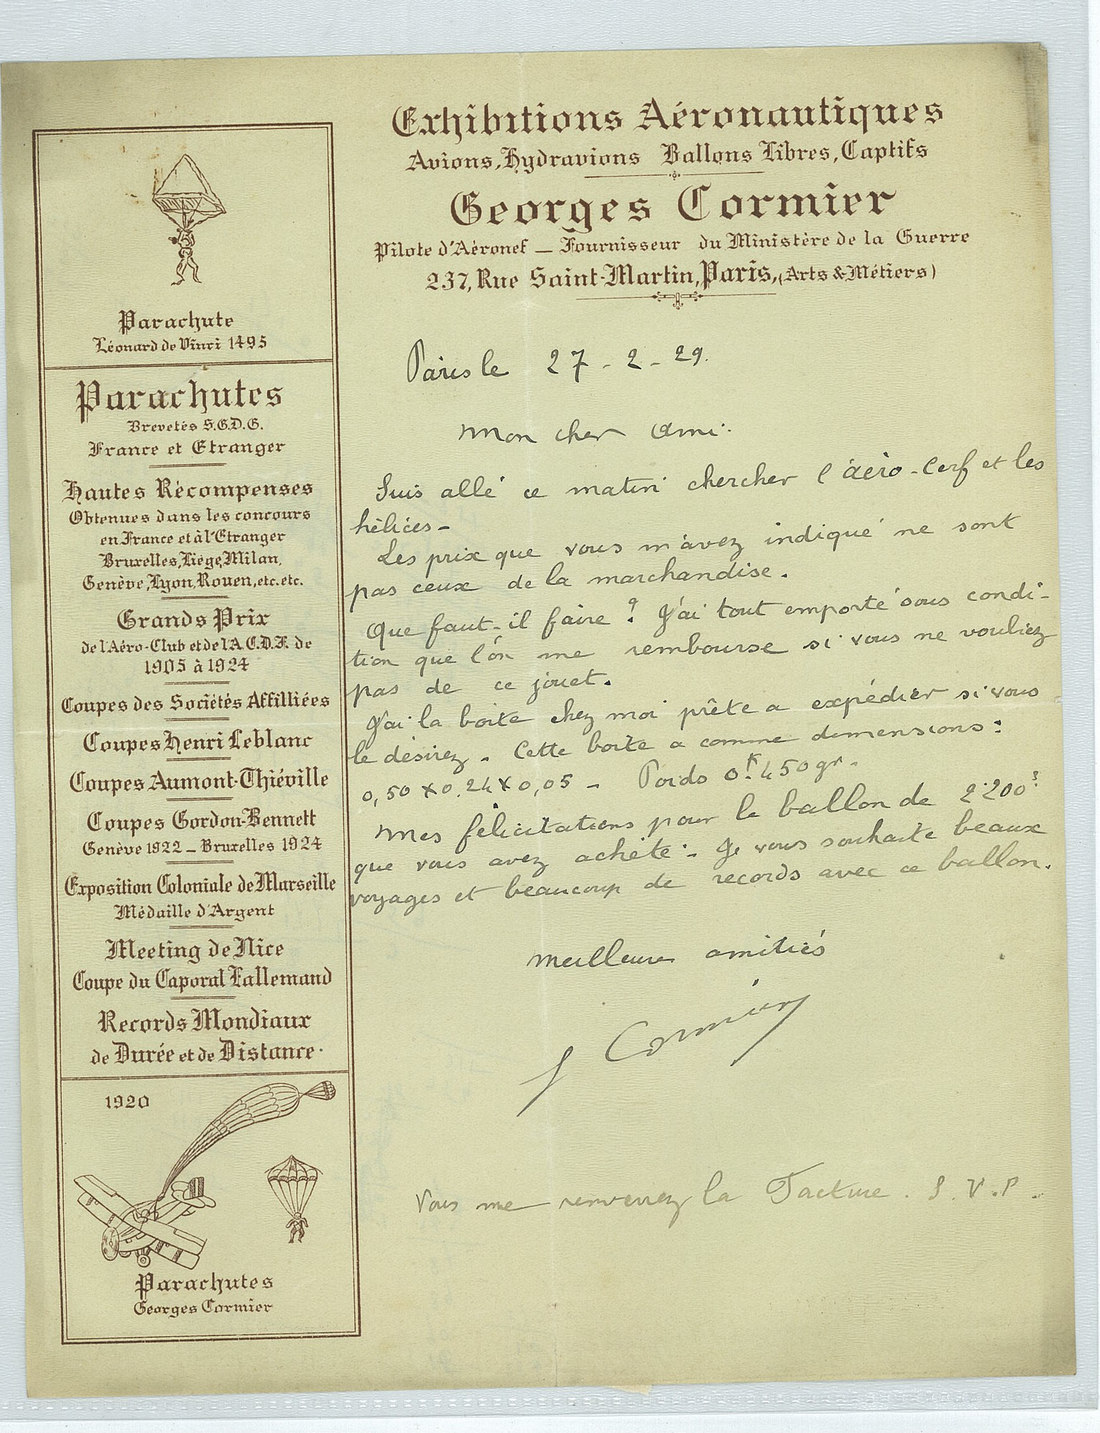 Exhibitions Aéronautiques
Avions, Hydravions Ballons Libres, Captifs
Georges Cormier
Pilote d'Aéronef — Fournisseur du Ministère de la Guerre
237, Rue Saint-Martin, Paris, (Arts & Métiers)
Parachute
Léonard de Vinci 1495
Parachutes
Brevetés S.G.D.G.
France et Etranger
Hautes Récompenses
Obtenues dans les concours
en France et à l'Etranger
Bruxelles, Liège, Milan,
Genève, Lyon, Rouen, etc. etc.
Grands Prix
de l'Aéro-Club et de l'A.C.D.F. de
1905 à 1924
Coupes des Sociétés Affilliées
Coupes Henri Leblanc
Coupes Aumont-Thiéville
Coupes Gordon-Bennett
Genève 1922 — Bruxelles 1924
Exposition Coloniale de Marseille
Médaille d'Argent
Meeting de Nice
Coupe du Caporal Lallemand
Records Mondiaux
de Durée et de Distance.
1920
Parachutes
Georges Cormier
Paris le 27 - 2 - 29.
Mon cher Ami.
Suis allé ce matin chercher l'aéro-Cerf et les
hélices -
Les prix que vous m'avez indiqué ne sont
pas ceux de la marchandise.
Que faut-il faire ? J'ai tout emporté sous condi-
tion que l'on me rembourse si vous ne vouliez
pas de ce jouet.
J'ai la boite chez moi prête a expédier si vous
le désirez. Cette boite a comme dimensions :
0,50 x 0.24 x 0,05 - Poids 0k 450 gr.
Mes félicitations pour le ballon de 2.200 3
que vous avez acheté. Je vous souhaite beaux
voyages et beaucoup de records avec ce ballon.
Meilleures amitiés
G Cormier
Vous me renverrez la Facture. S.V.P.